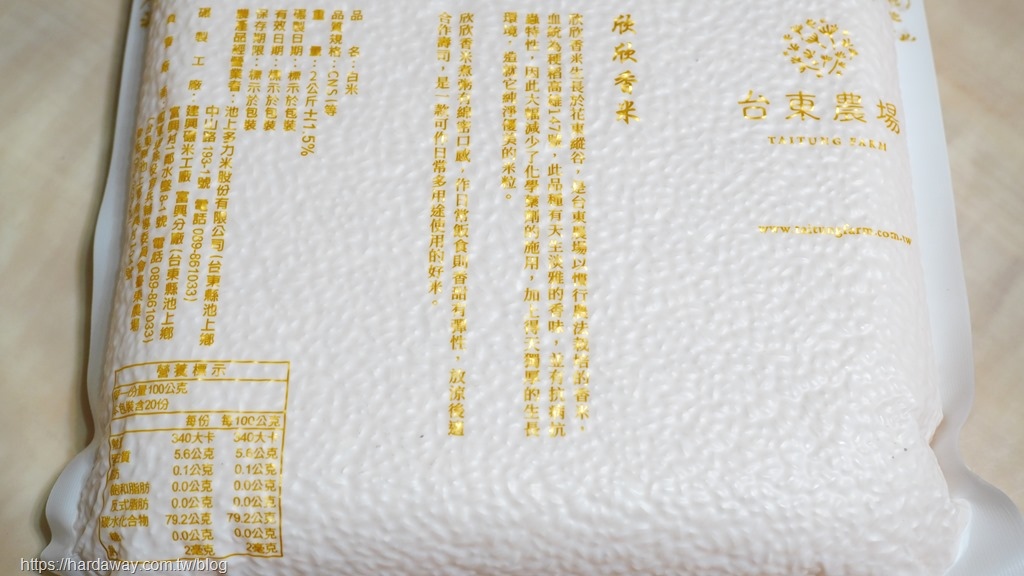 台東農場
TAITUNG FARM
www.taitungfarm.com.tw
欣欣香米
欣欣香米生長於花東縱谷，是台東農場以慣行農法栽培的香米，
血統為種稻高雄147號，此品種有天生淡雅的香味，並有抗病抗
蟲特性，因此大幅減少了化學藥劑的施用，加上得天獨厚的生長
環境，造就它純淨優美的米粒。
欣欣香米煮粥有綿密口感，作日常飯食則香甜有彈性，放涼後適
合作壽司，是一款可作日常多用途使用的好米。
品 名：白米
品質規格：CNS一等
重 量：2公斤±1.5%
碾製日期：標示於包裝
有效日期：標示於包裝
保存期限：標示於包裝
農產品經營業者：池上多力米股份有限公司（台東縣池上鄉
中山路193-1號 電話 089-861033）
碾製工廠：建興碾米工廠 富興分廠（台東縣池上鄉
富興村水墜8-1號 電話 089-861033）
營養標示
每一份量100公克
本包裝含20份
每份 每100公克
340大卡 340大卡
5.6公克 5.6公克
0.1公克 0.1公克
飽和脂肪 0.0公克 0.0公克
反式脂肪 0.0公克 0.0公克
碳水化合物 79.2公克 79.2公克
0.0公克 0.0公克
2毫克 2毫克
https://hardaway.com.tw/blog